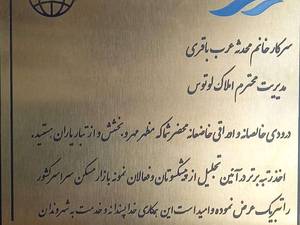 سرکار خانم محدثه عرب باقری
مدیریت محترم املاک لوتوس
درودی خالصانه و احترامی خاضعانه محضر شما که مظهر مهر و بخشش و از تبار یاران هستید.
اخذ رتبه برتر در آئین تجلیل از پیشکسوتان و فعالان نمونه بازار مسکن سراسر کشور
را تبریک عرض نموده و امید است این همکاری خداپسندانه و خدمت به شهروندان